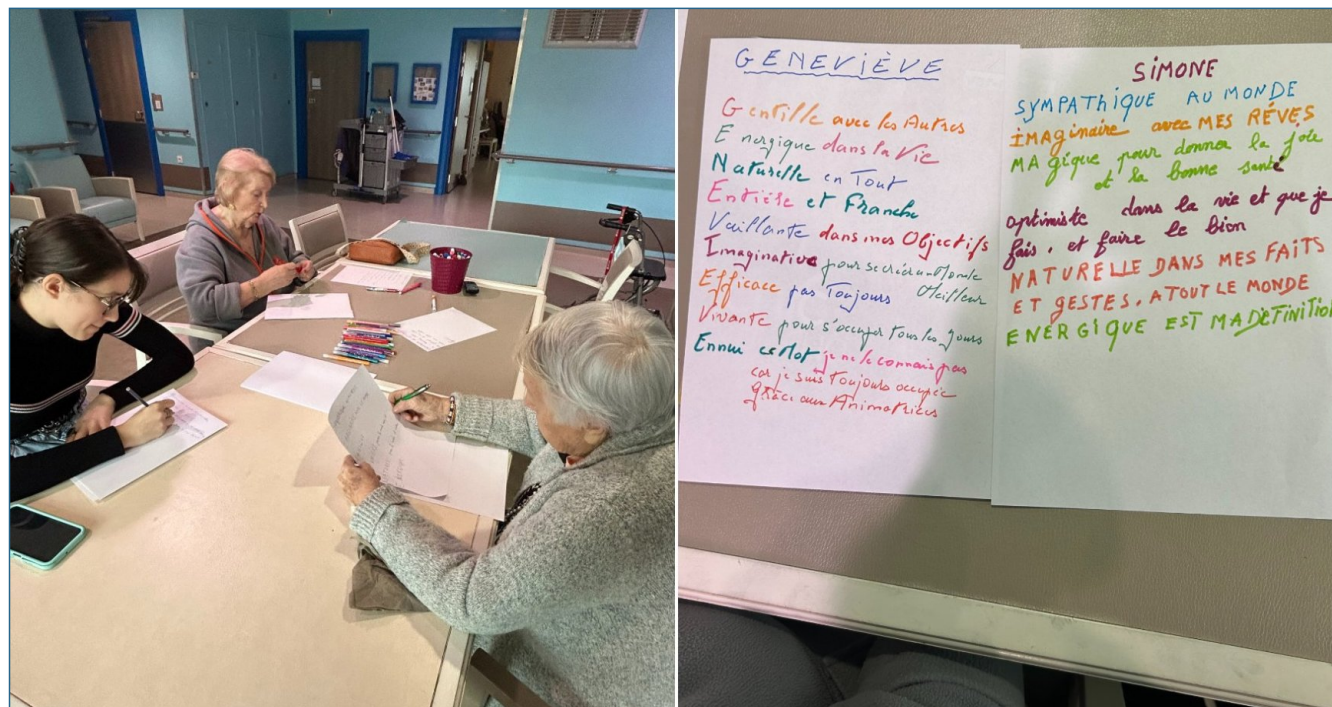 GENEVIÈVE
Gentille avec les Autres
Energique dans la Vie
Naturelle en Tout
Entière et Franche
Vaillante dans mes Objectifs
Imaginative pour se créer un Monde
Meilleur
Efficace pas Toujours
Vivante pour s'occuper Tous les Jours
Ennui ce Mot je ne le connais pas
car je suis Toujours occupée
grâce aux Animatrices
SIMONE
SYMPATHIQUE AU MONDE
IMAGINAIRE avec MES RÊVES
MAgique pour donner la joie
et la bonne santé
optimiste dans la vie et que je
fais, et faire le bien
NATURELLE DANS MES FAITS
ET GESTES. A TOUT LE MONDE
ENERGIQUE EST MA DEFINITION